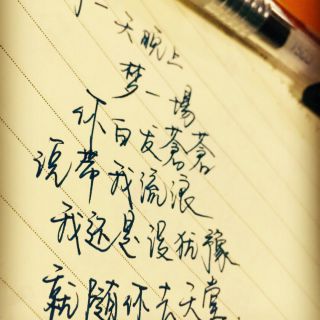 一天晚上
梦一場
你白发蒼蒼
说带我流浪
我还是没犹豫
就随你去天堂